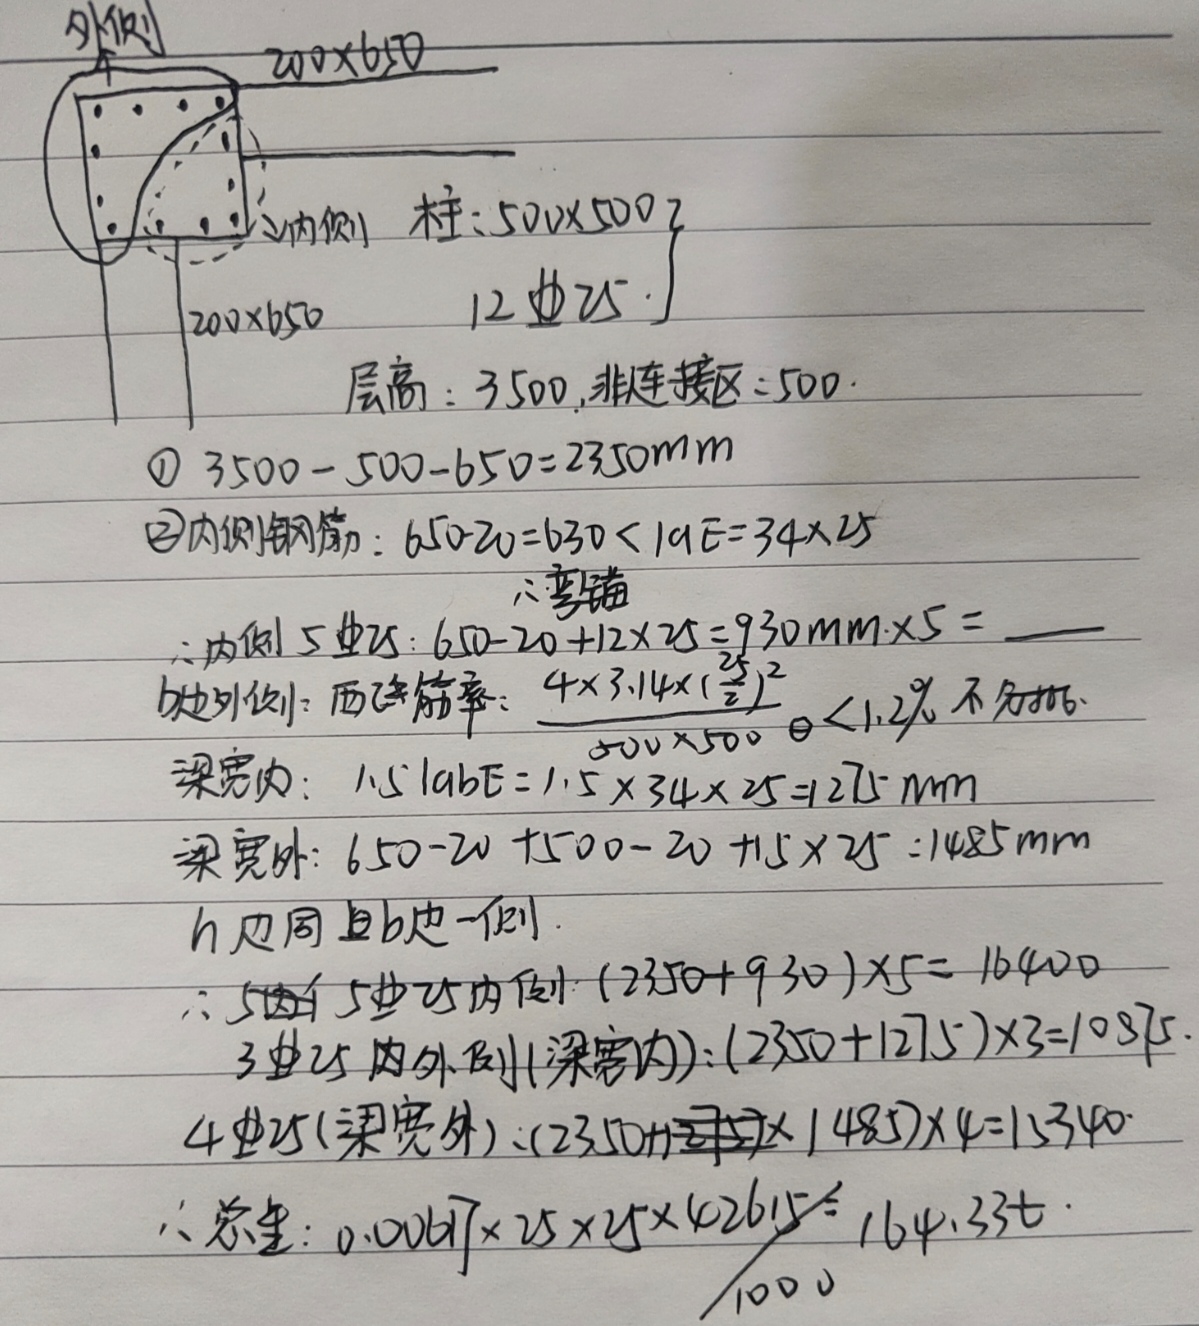 外侧
200×650
内侧 柱:500×500
12⌀25.
200×650
层高:3500,非连接区:500.
① 3500-500-650=2350mm
②内侧钢筋:650-20=630<laE=34×25
∴弯锚
∴内侧5⌀25:650-20+12×25=930mm.×5=
b边外侧:配筋率:4×3.14×(25/2)²/500×500 <1.2% 不分批.
梁宽内:1.5labE=1.5×34×25=1275mm
梁宽外:650-20+500-20+15×25=1485mm
h边同b边一侧.
∴5⌀25内侧:(2350+930)×5=16400
3⌀25外侧(梁宽内):(2350+1275)×3=10875.
4⌀25(梁宽外):(2350×1485)×4=15340.
∴总重:0.00617×25×25×42615/1000=164.33t.